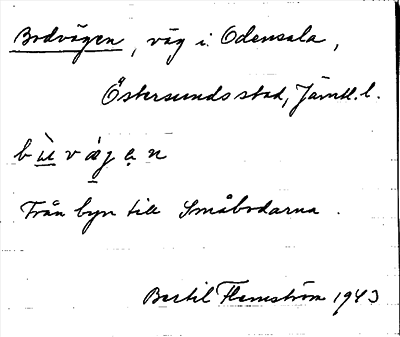 Bodvägen, väg i Odensala,
Östersunds stad, Jämtl. l.
bùvǽgạn
Från byn till Småbodarna.
Bertil Flemström 1943